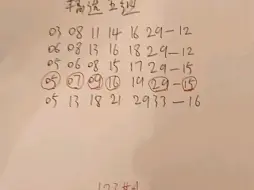 精选五注
03 08 11 14 16 29-12
06 08 13 16 18 29-12
05 06 08 15 17 29-15
05 07 09 16 19 29-15
05 13 18 21 29 33-16